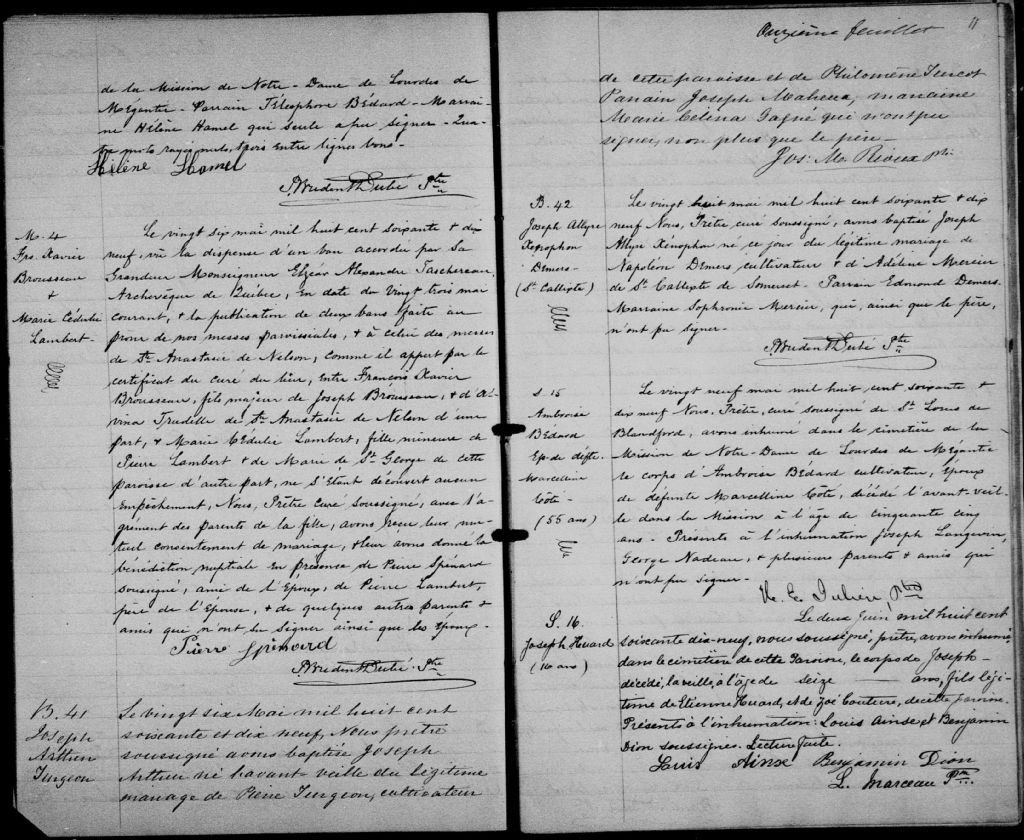 de la Mission de Notre-Dame de Lourdes de
Mégantic - Parrain Télesphore Bédard - Marrai-
ne Hélène Hamel qui seule a pu signer - Qua-
tre mots rayés nuls, trois entre lignes bons -
Hélène Hamel
Prudent Dubé Ptre
M. 4
Frs. Xavier
Brousseau
+
Marie Cédulie
Lambert -
Le vingt six mai mil huit cent soixante & dix
neuf, vû la dispense d'un ban accordée par Sa
Grandeur Monseigneur Elzéar Alexandre Taschereau,
Archevêque de Québec, en date du vingt trois mai
courant, & la publication de deux bans faite au
prône de nos messes paroissiales, & à celui des messes
de Ste Anastasie de Nelson, comme il appert par le
certificat du curé du lieu, entre François Xavier
Brousseau, fils majeur de Joseph Brousseau, & d'Al-
vina Trudelle de Ste Anastasie de Nelson d'une
part, & Marie Cédulie Lambert, fille mineure de
Pierre Lambert & de Marie de St George de cette
paroisse d'autre part, ne s'étant découvert aucun
Empêchement, Nous, Prêtre Curé Soussigné, avec l'a-
grément des parents de la fille, avons reçu leur mu-
tuel consentement de mariage, & leur avons donné la
bénédiction nuptiale En présence de Pierre Spénard
soussigné, ami de l'Epoux, de Pierre Lambert,
père de l'Epouse, & de quelques autres parents &
amis qui n'ont su signer ainsi que les époux.
Pierre Spénard
Prudent Dubé Ptre
B. 41
Joseph
Arthur
Turgeon
Le vingt six Mai mil huit cent
soixante et dix neuf, Nous prêtre
soussigné avons baptisé Joseph
Arthur né l'avant-veille du légitime
mariage de Pierre Turgeon, cultivateur
Onzième feuillet
11
de cette paroisse et de Philomène Turcot
Parrain Joseph Maheux, marraine
Marie Célina Gagné qui n'ont pu
signer, non plus que le père -
Jos: M. Rioux ptre
B. 42
Joseph Allyre
Xénophon
Demers -
(St Callixte)
Le vingt huit mai mil huit cent soixante & dix
neuf Nous, Prêtre curé soussigné, avons baptisé Joseph
Allyre Xénophon né ce jour du légitime mariage de
Napoléon Demers cultivateur & d'Adéline Mercier
de St Callixte de Somerset - Parrain Edmond Demers.
Marraine Sophronie Mercier, qui, ainsi que le père,
n'ont pu signer -
Prudent Dubé Ptre
S. 15
Ambroise
Bédard
Ep. de défte.
Marcelline
Côté -
(55 ans)
Le vingt neuf mai mil huit cent soixante &
dix neuf Nous, Prêtre, curé soussigné de St Louis de
Blandford, avons inhumé dans le cimetière de la
Mission de Notre-Dame de Lourdes de Mégantic
le corps d'Ambroise Bédard cultivateur, Epoux
de défunte Marcelline Côté, décédé l'avant-veil-
le dans la Mission à l'âge de cinquante cinq
ans - Présents à l'inhumation Joseph Langevin,
George Nadeau, & plusieurs parents & amis qui
n'ont pu signer -
Julien, Ptre
S. 16.
Joseph Huard
(16 ans)
Le deux Juin mil huit cent
soixante dix-neuf, nous soussigné, prêtre, avons inhumé
dans le cimetière de cette Paroisse, le corps de Joseph -
décédé, la veille, à l'âge de seize — ans, fils légi-
time de Etienne Huard, et de Zoé Couture, de cette paroisse.
Présents à l'inhumation: Louis Ainse et Benjamin
Dion soussignés. Lecture faite.
Louis Ainse Benjamin Dion
L. Marceau Ptre